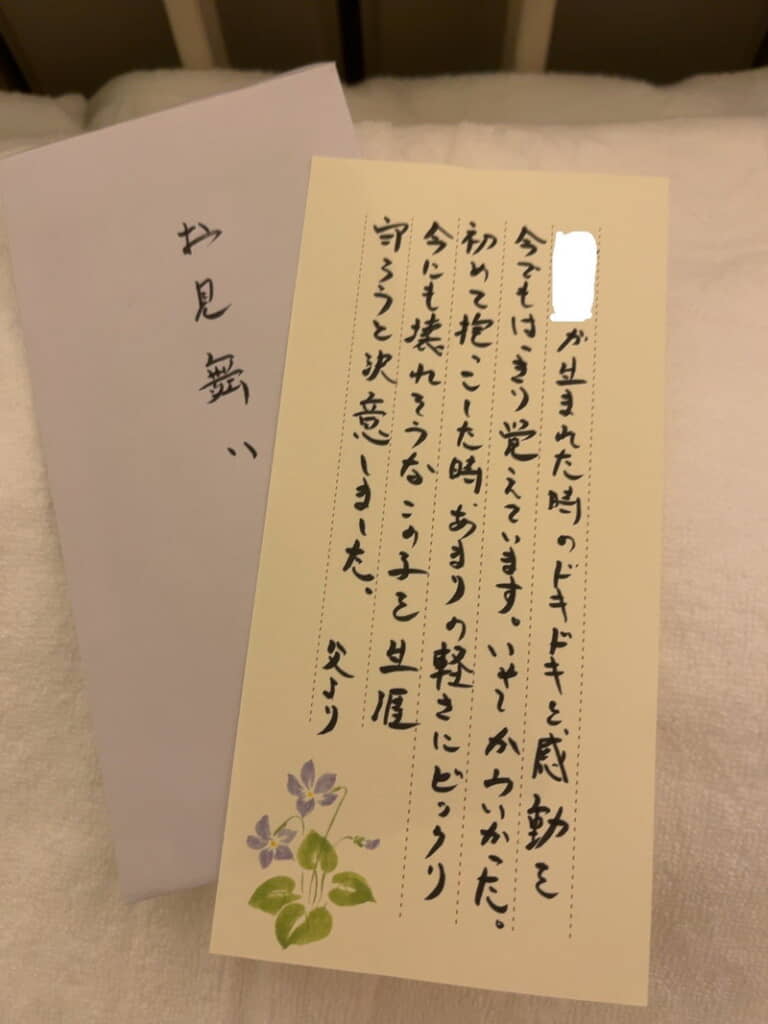 が生まれた時のドキドキと、感動を
今でもはっきり覚えています。かわいかった。
初めて抱っこした時、あまりの軽さにビックリ
今にも壊れそうなこの子を生涯
守ろうと決意しました。
父より
お見舞い